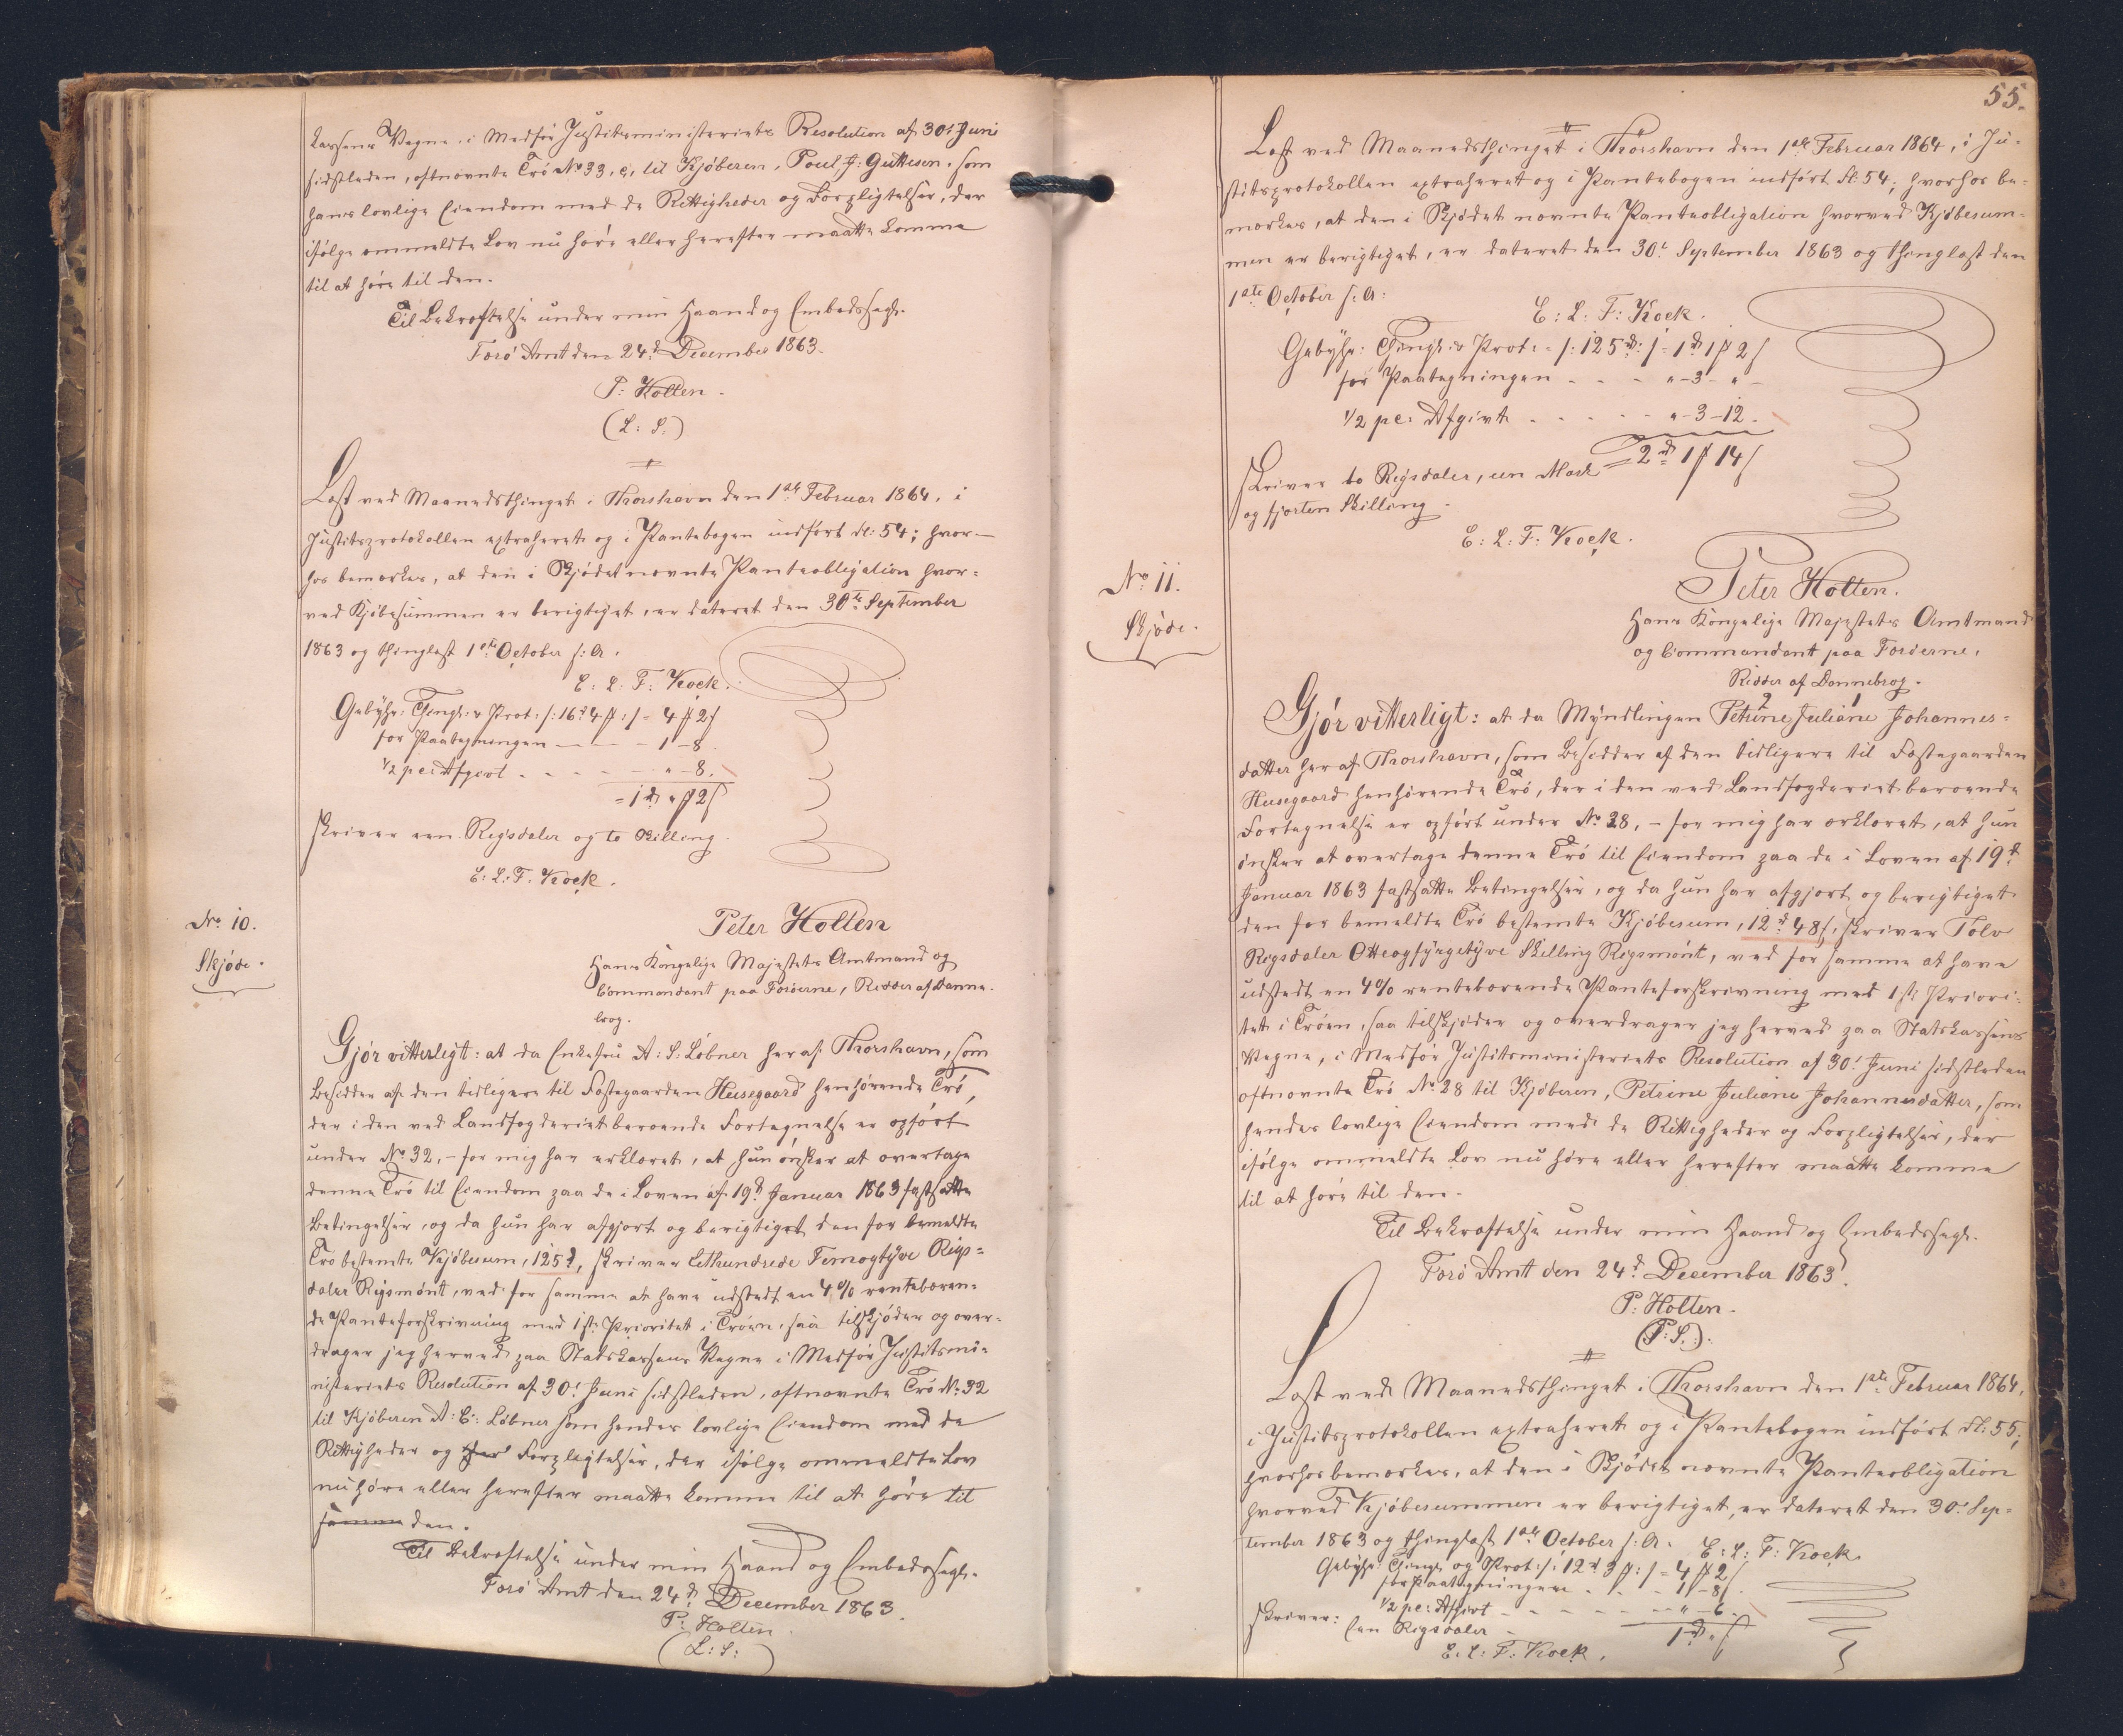 kassens Vegne i Medfør Justitsministeriets Resolution af 30' Juni
sidstleden, oftnævnte Trö No 33, c, til Kjøberen, Poul J: Guttesen, som
hans lovlige Eiendom med de Rettigheder og Forpligtelser, der
ifølge ommeldte Lov nu høre eller herefter maatte komme
til at høre til den.
Til Bekræftelse under min Haand og Embedssegl.
Færø Amt den 24d December 1863.
P: Holten.
(L: S:)
Læst ved Maanedsthinget i Thorshavn den 1ste Februar 1864, i
Justitsprotokollen extraheret og i Pantebogen indført Fl: 54; hvor-
hos bemærkes, at den i Skjødet nævnte Panteobligation hvor=
ved Kjøbesummen er berigtiget, er dateret den 30te September
1863 og thinglæst 1ste October s: A.
E: L: F: Kock.
Gebyhr: Thingl: & Prot: /: 16d 4 ℳ :/ = 4 ℳ 2 ſ
for Paategningen — — — 1 – 8.
1/2 pc: Afgivt - - - - - " – 8.
= 1 d " ℳ 2 ſ
skriver een Rigsdaler og to Skilling.
E: L: F. Kock.
No 10.
Skjøde.
Peter Holten
Hans Kongelige Majestæts Amtmand og
Commandant paa Færøerne, Ridder af Danne-
brog.
Gjør vitterligt: at da Enkefru A: S: Løbner her af Thorshavn, som
Besidder af den tidligere til Fæstegaarden Husegaard henhørende Trö,
der i den ved Landfogderiet beroende Fortegnelse er opført
under No 32, – for mig har erklæret, at hun ønsker at overtage
denne Trö til Eiendom paa de i Loven af 19d Januar 1863 fastsatte
Betingelser, og da hun har afgjort og berigtiget den for bemeldte
Trö bestemte Kjøbesum, 125d, skriver Eethundrede Femogtyve Rigs=
daler Rigsmønt, ved for samme at have udstedt en 4% rentebæren=
de Panteforskrivning med 1ste Prioritet i Tröen, saa tilskjøder og over-
drager jeg herved paa Statskassens Vegne i Medfør Justitsmi=
nisteriets Resolution af 30' Juni sidstleden, oftnævnte Trö No 32
til Kjøberen A: C: Løbner som hendes lovlige Eiendom med de
Rettigheder og Forpligtelser, der ifølge ommeldte Lov
nu høre eller herefter maatte komme til at høre til
samme den.
Til Bekræftelse under min Haand og Embedssegl.
Færø Amt den 24d December 1863.
P: Holten.
(L: S:)
55.
Læst ved Maanedsthinget i Thorshavn den 1ste Februar 1864, i Ju-
stitsprotokollen extraheret og i Pantebogen indført Fl: 54; hvorhos be-
mærkes, at den i Skjødet nævnte Panteobligation hvorved Kjøbesum-
men er berigtiget, er dateret den 30' September 1863 og thinglæst den
1ste October s: A:
E: L: F: Kock.
Gebyhr: Thingl: & Prot: - /: 125d :/ = 1d 1 ℳ 2 ſ
for Paategningen - - - " – 3 – " –
1/2 pc: Afgivt - - - - - " – 3 – 12.
= 2d 1 ℳ 14 ſ
skriver to Rigsdaler, een Mark
og fjorten Skilling.
E: L: F: Kock.
No 11.
Skjøde.
Peter Holten.
Hans Kongelige Majestæts Amtmand
og Commandant paa Færøerne,
Ridder af Dannebrog.
2 1
Gjør vitterligt: at da Myndlingen Petrine Juliane Johannes=
datter her af Thorshavn, som Besidder af den tidligere til Fæstegaarden
Husegaard henhørende Trö, der i den ved Landfogderiet beroende
Fortegnelse er opført under No 28, – for mig har erklæret, at hun
ønsker at overtage denne Trö til Eiendom paa de i Loven af 19d
Januar 1863 fastsatte Betingelser, og da hun har afgjort og berigtiget
den for bemeldte Trö bestemte Kjøbesum, 12d 48 ſ, skriver Tolv
Rigsdaler Otteogfyrgetyve Skilling Rigsmønt, ved for samme at have
udstedt en 4% rentebærende Panteforskrivning med 1ste Priori-
tet i Tröen, saa tilskjøder og overdrager jeg herved paa Statskassens
Vegne, i Medfør Justitsministeriets Resolution af 30' Juni sidstleden
oftnævnte Trö No 28 til Kjøberen, Petrine Juliane Johannesdatter, som
hendes lovlige Eiendom med de Rettigheder og Forpligtelser, der
ifølge ommeldte Lov nu høre eller herefter maatte komme
til at høre til den.
Til Bekræftelse under min Haand og Embedssegl.
Færø Amt den 24d December 1863.
P: Holten.
(L: S:).
Læst ved Maanedsthinget i Thorshavn den 1ste Februar 1864,
i Justitsprotokollen extraheret og i Pantebogen indført Fl: 55;
hvorhos bemærkes, at den i Skjødet nævnte Panteobligation
hvorved Kjøbesummen er berigtiget, er dateret den 30' Sep-
tember 1863 og thinglæst 1ste October s: A. E: L: F: Kock.
Gebyhr: Thingl: og Prot: /: 12d 3 ℳ :/ = 4 ℳ 2 ſ
for Paategningen - - - 1 – 8 ſ.
1/2 pc: Afgivt - - - - - " – 6.
skriver: Een Rigsdaler - 1d " ſ
E. L: F: Kock.